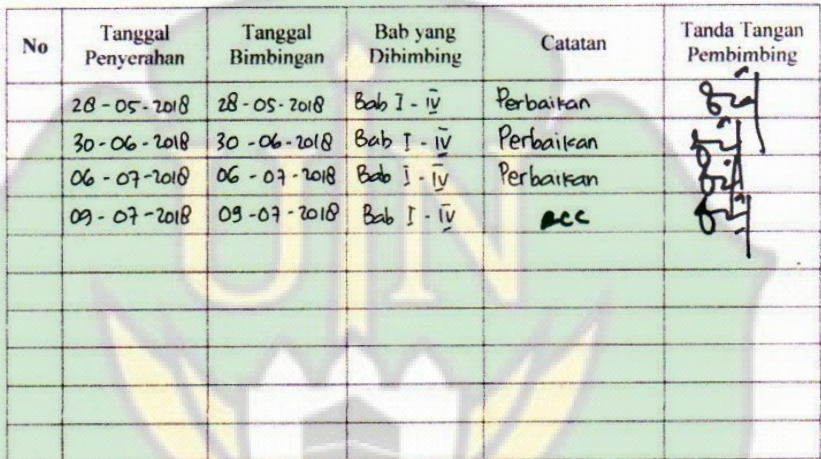 No Tanggal Penyerahan Tanggal Bimbingan Bab yang Dibimbing Catatan Tanda Tangan Pembimbing
28-05-2018 28-05-2018 Bab I - IV Perbaikan
30-06-2018 30-06-2018 Bab I - IV Perbaikan
06-07-2018 06-07-2018 Bab I - IV Perbaikan
09-07-2018 09-07-2018 Bab I - IV acc
UIN